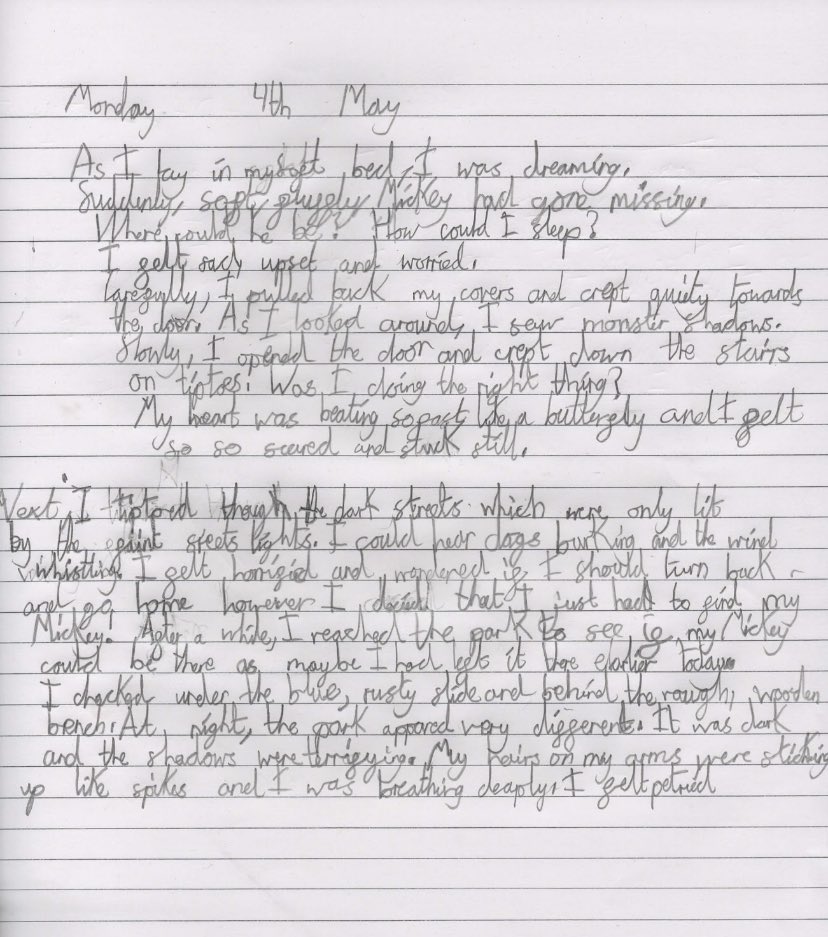 Monday 4th May
As I lay in my soft bed, I was dreaming.
Suddenly, soft, fluffy Mickey had gone missing.
Where could he be? How could I sleep?
I felt sady upset and worried.
Carefully, I pulled back my covers and crept quiety towards
the door. As I looked around, I saw monster shadows.
Slowly, I opened the door and crept down the stairs
on tiptoes. Was I doing the right thing?
My heart was beating so fast like a butterfly and I felt
so so scared and stuck still.
Next, I tiptored though the dark streets which were only lit
by the faint streets lights. I could hear dogs barking and the wind
whistling. I felt horrified and wondered if I should turn back
and go home however I that I just had to find my
Mickey. After a while, I reached the park to see if my Mickey
could be there as maybe I had left it there earlier today
I checked under the blue, rusty slide and behind the rough, wooden
bench. At night, the park appared very different. It was dark
and the shadows were terrifying. My hairs on my arms were sticking
up like spikes and I was breathing deaply. I felt petried